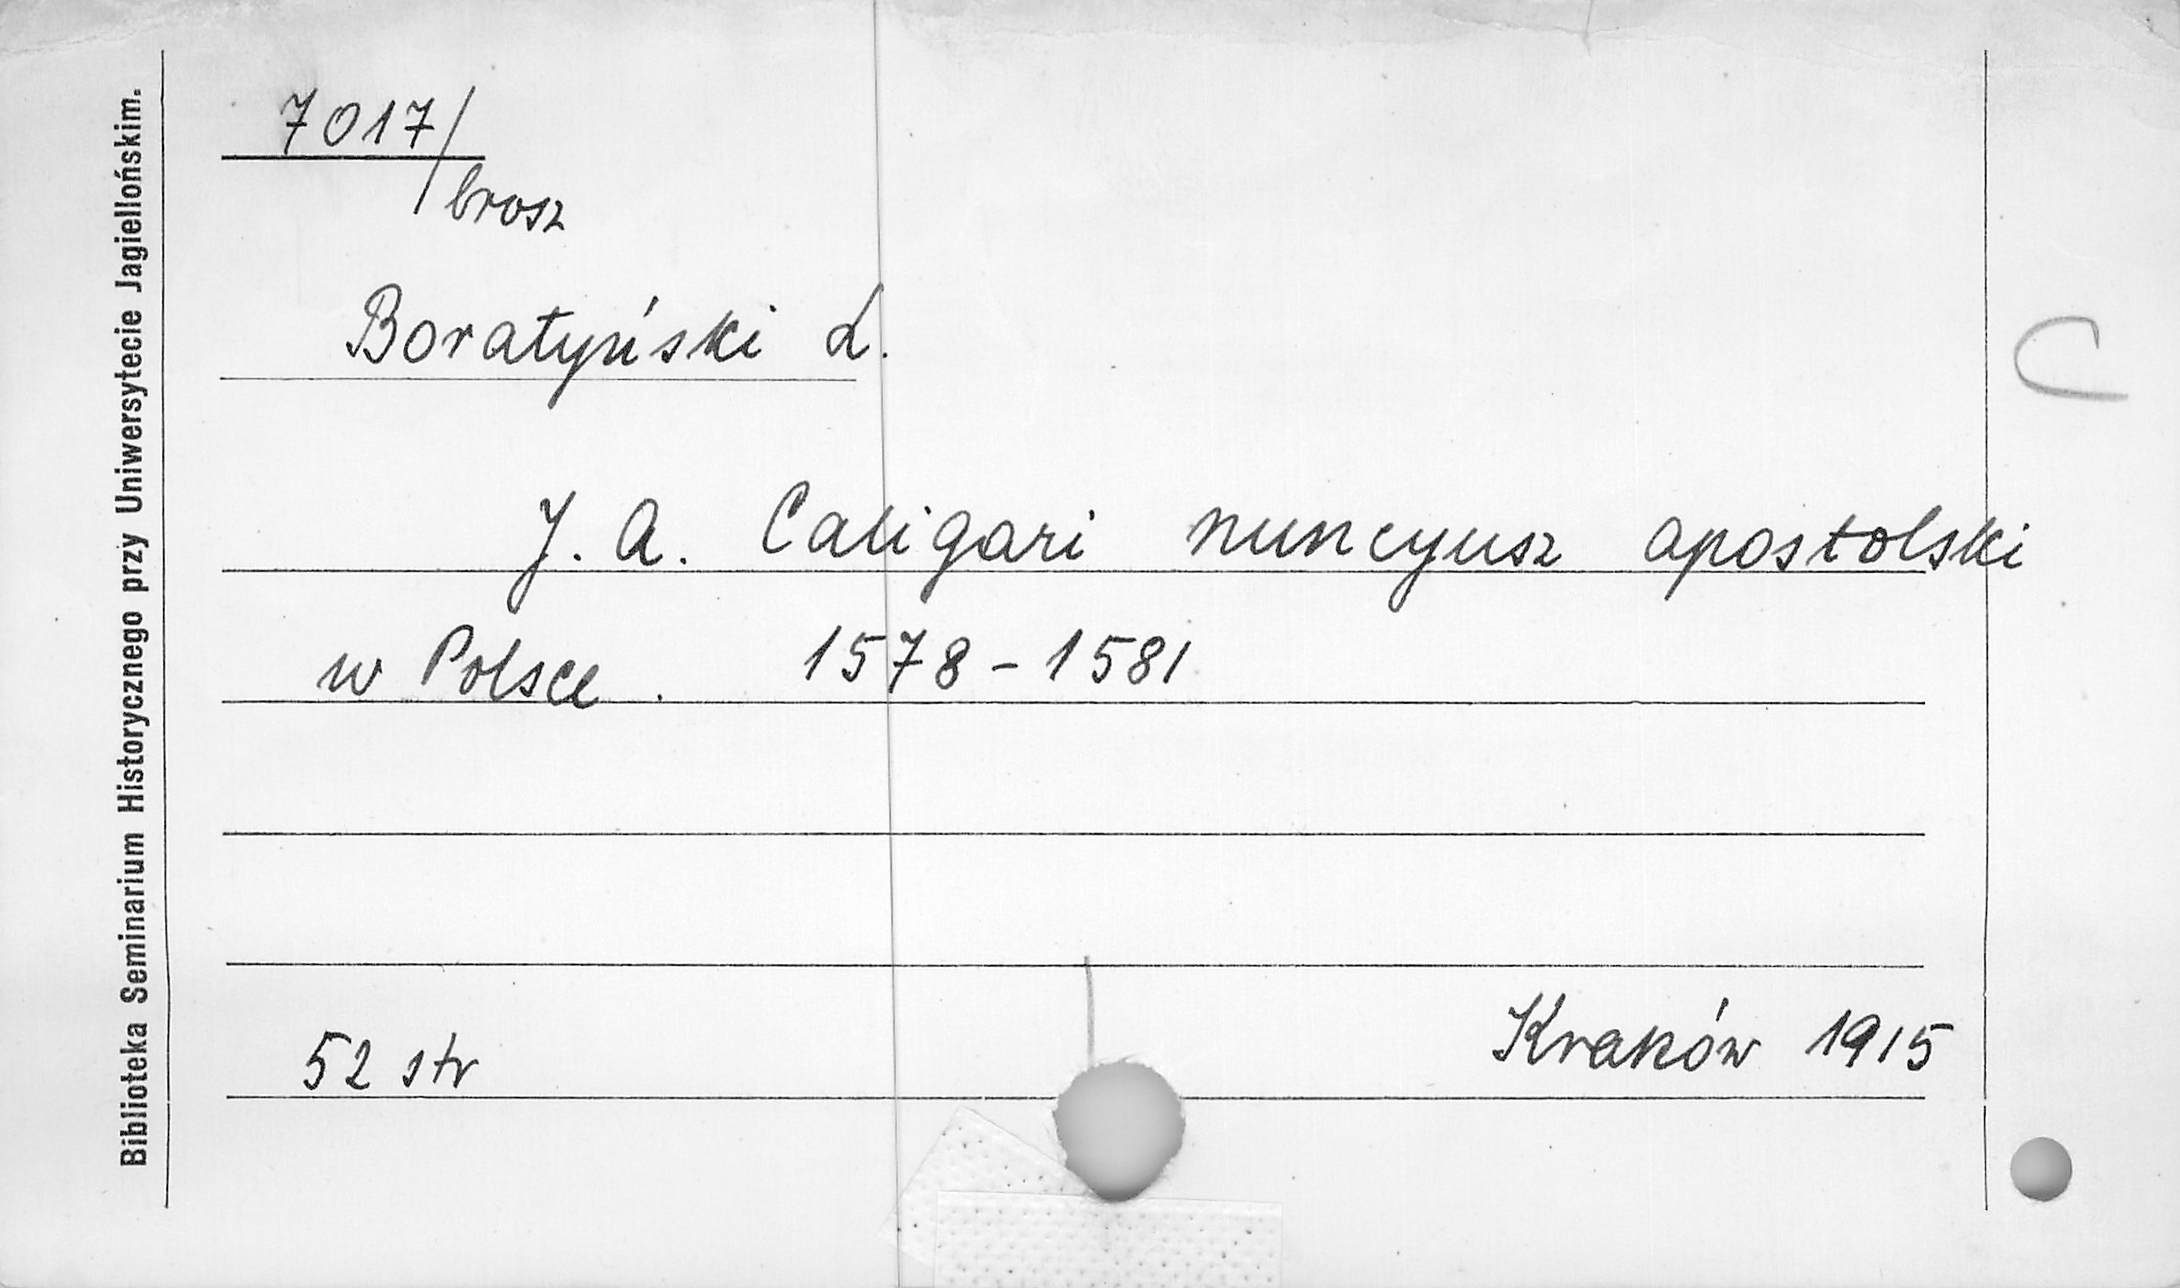 Biblioteka Seminarium Historycznego przy Uniwersytecie Jagiellońskim.
7017/
brosz
Boratyński L.
J. A. Caligari nuncyusz apostolski
w Polsce. 1578-1581
52 str
Kraków 1915